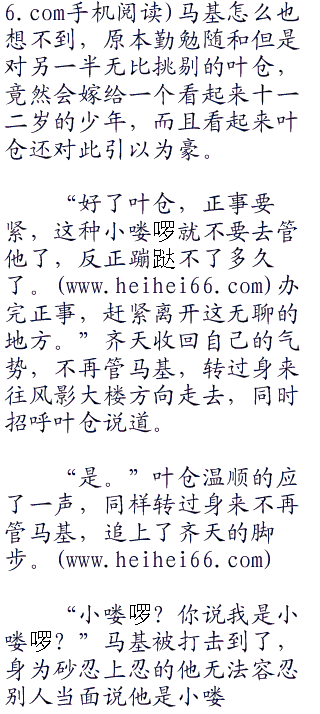 6.com手机阅读)马基怎么也
想不到，原本勤勉随和但是
对另一半无比挑剔的叶仓，
竟然会嫁给一个看起来十一
二岁的少年，而且看起来叶
仓还对此引以为豪。
“好了叶仓，正事要
紧，这种小喽啰就不要去管
他了，反正蹦跶不了多久
了。(www.heihei66.com)办
完正事，赶紧离开这无聊的
地方。”齐天收回自己的气
势，不再管马基，转过身来
往风影大楼方向走去，同时
招呼叶仓说道。
“是。”叶仓温顺的应
了一声，同样转过身来不再
管马基，追上了齐天的脚
步。(www.heihei66.com)
“小喽啰？你说我是小
喽啰？”马基被打击到了，
身为砂忍上忍的他无法容忍
别人当面说他是小喽